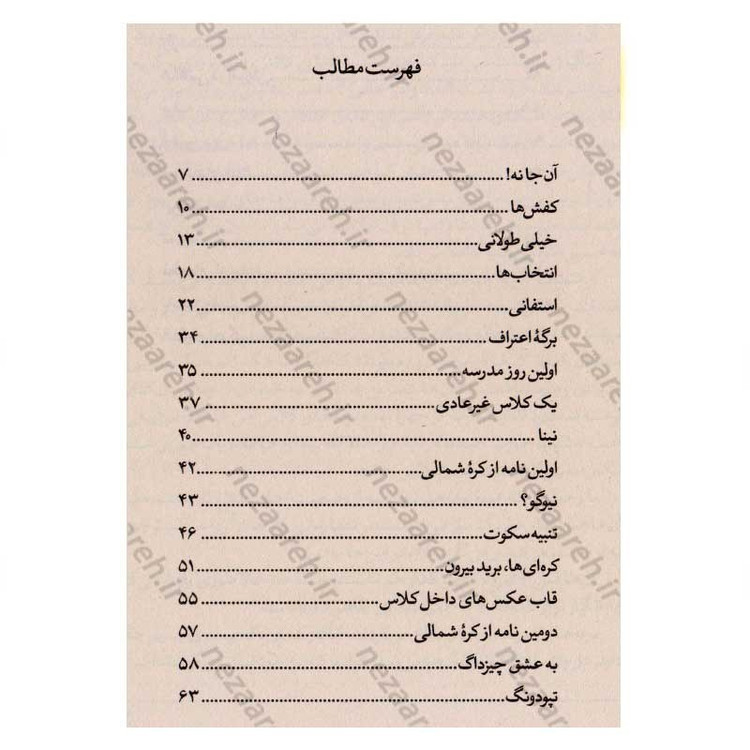 فهرست مطالب
آن جا نه! ........ ۷
کفش‌ها ........ ۱۰
خیلی طولانی ........ ۱۳
انتخاب‌ها ........ ۱۸
استفانی ........ ۲۲
برگهٔ اعتراف ........ ۳۴
اولین روز مدرسه ........ ۳۵
یک کلاس غیرعادی ........ ۳۷
نینا ........ ۴۰
اولین نامه از کرهٔ شمالی ........ ۴۲
نیوگو؟ ........ ۴۳
تنبیه سکوت ........ ۴۶
کره‌ای‌ها، برید بیرون ........ ۵۱
قاب عکس‌های داخل کلاس ........ ۵۵
دومین نامه از کرهٔ شمالی ........ ۵۷
به عشق چیزداگ ........ ۵۸
تپودونگ ........ ۶۳
nezaareh.ir